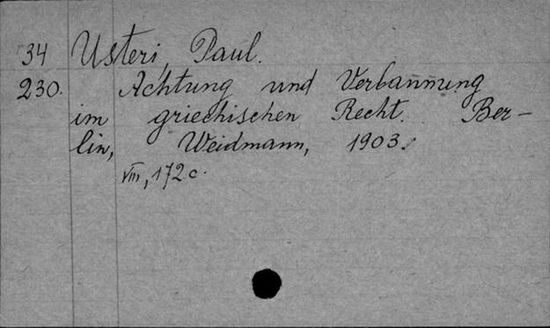 34 Usteri, Paul.
230. Achtung und Verbannung
im griechischen Recht. Ber-
lin, Weidmann, 1903.
VIII, 172 c.